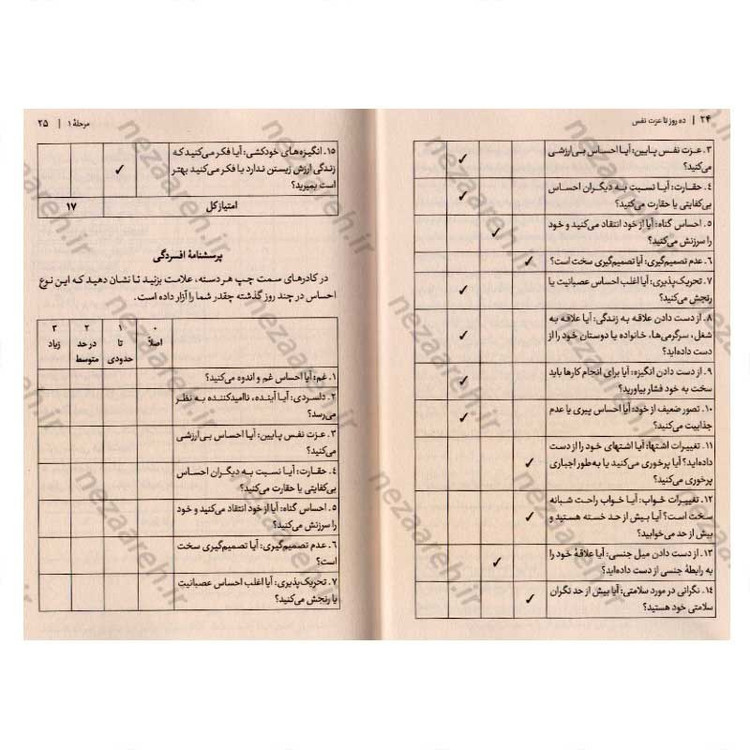 ۲۴ | ده روز تا عزت نفس
۳. عزت نفس پایین: آیا احساس بی‌ارزشی
می‌کنید؟
✓
۴. حقارت: آیا نسبت به دیگران احساس
بی‌کفایتی یا حقارت می‌کنید؟
✓
۵. احساس گناه: آیا از خود انتقاد می‌کنید و خود
را سرزنش می‌کنید؟
✓
۶. عدم تصمیم‌گیری: آیا تصمیم‌گیری سخت است؟
✓
۷. تحریک‌پذیری: آیا اغلب احساس عصبانیت یا
رنجش می‌کنید؟
✓
۸. از دست دادن علاقه به زندگی: آیا علاقه به
شغل، سرگرمی‌ها، خانواده یا دوستان خود را از
دست داده‌اید؟
✓
۹. از دست دادن انگیزه: آیا برای انجام کارها باید
سخت به خود فشار بیاورید؟
✓
۱۰. تصور ضعیف از خود: آیا احساس پیری یا عدم
جذابیت می‌کنید؟
✓
۱۱. تغییرات اشتها: آیا اشتهای خود را از دست
داده‌اید؟ آیا پرخوری می‌کنید یا به‌طور اجباری
پرخوری می‌کنید؟
✓
۱۲. تغییرات خواب: آیا خواب راحت شبانه
سخت است؟ آیا بیش از حد خسته هستید و
بیش از حد می‌خوابید؟
✓
۱۳. از دست دادن میل جنسی: آیا علاقهٔ خود را
به رابطهٔ جنسی از دست داده‌اید؟
✓
۱۴. نگرانی در مورد سلامتی: آیا بیش از حد نگران
سلامتی خود هستید؟
✓
مرحلهٔ ۱ | ۲۵
۱۵. انگیزه‌های خودکشی: آیا فکر می‌کنید که
زندگی ارزش زیستن ندارد یا فکر می‌کنید بهتر
است بمیرید؟
✓
امتیاز کل ۱۷
پرسشنامهٔ افسردگی
در کادرهای سمت چپ هر دسته، علامت بزنید تا نشان دهید که این نوع
احساس در چند روز گذشته چقدر شما را آزار داده است.
۰ ۱ ۲ ۳
اصلاً تا در حد زیاد
حدودی متوسط
۱. غم: آیا احساس غم و اندوه می‌کنید؟
۲. دلسردی: آیا آینده، ناامیدکننده به نظر
می‌رسد؟
۳. عزت نفس پایین: آیا احساس بی‌ارزشی
می‌کنید؟
۴. حقارت: آیا نسبت به دیگران احساس
بی‌کفایتی یا حقارت می‌کنید؟
۵. احساس گناه: آیا از خود انتقاد می‌کنید و خود
را سرزنش می‌کنید؟
۶. عدم تصمیم‌گیری: آیا تصمیم‌گیری سخت
است؟
۷. تحریک‌پذیری: آیا اغلب احساس عصبانیت
یا رنجش می‌کنید؟
nezaareh.ir